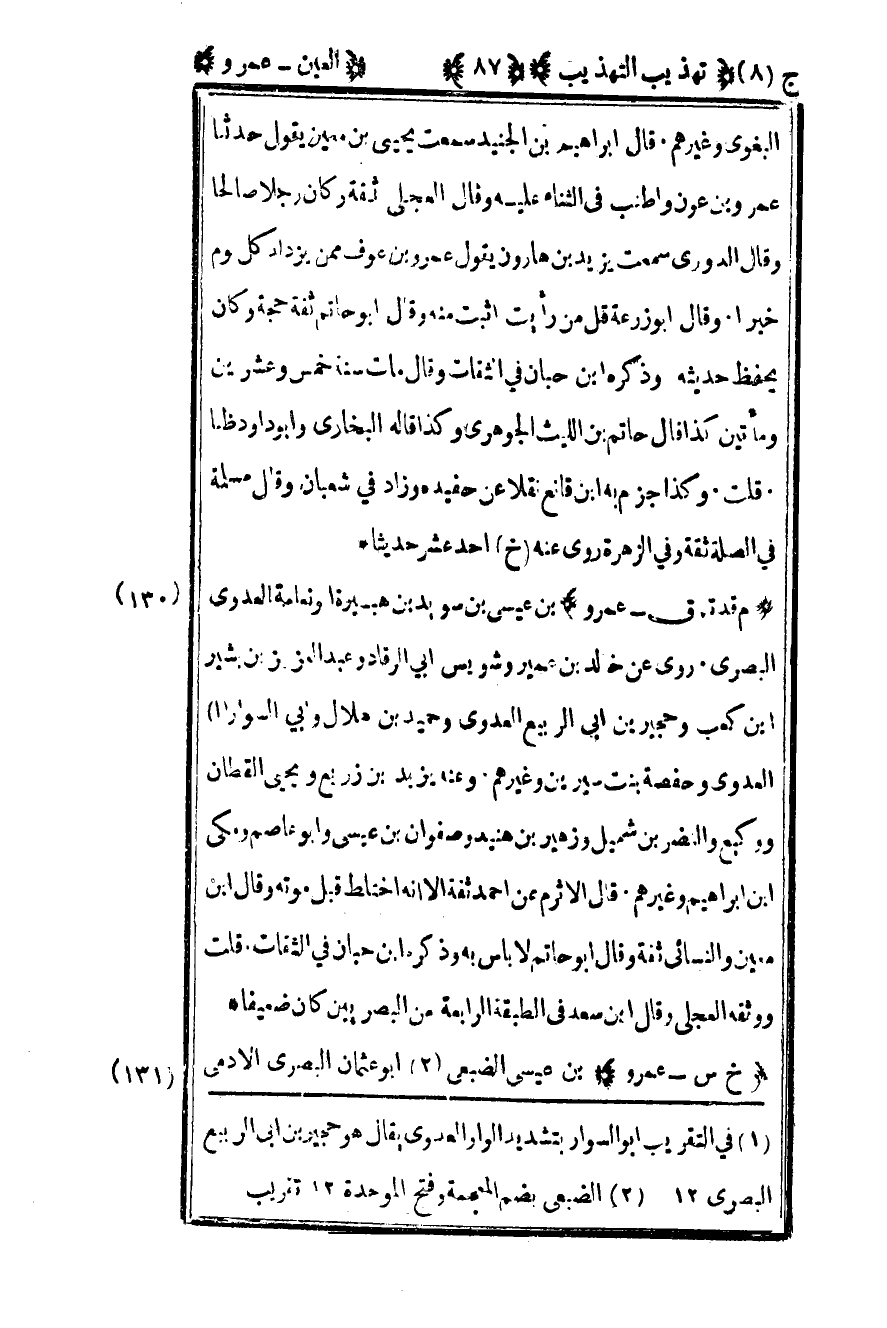 ج (٨) ﴿ تهذيب التهذيب ﴾ ﴿ ٨٧ ﴾ ﴿ العين ـ عمرو ﴾
البغوى وغيرهم · قال ابراهيم بن الجنيد سمعت يحيى بن معين يقول حدثنا
عمرو بن عون واطنب فى الثناء عليه وقال العجلى ثقة وكان رجلا صالحا
وقال الدورى سمعت يزيد بن هارون يقول عمرو بن عوف ممن يزداد كل يوم
خيرا · وقال ابوزرعة قل من رأيت اثبت منه وقال ابوحاتم ثقة حجة وكان
يحفظ حديثه وذكره ابن حبان في الثقات وقال مات سنة خمس وعشرين
ومأتين كذا قال حاتم بن الليث الجوهرى وكذا قاله البخارى وابوداود ظنا
· قلت · وكذا جزم به ابن قانع نقلا عن حفيده وزاد في شعبان وقال مسلمة
في الصلة ثقة وفي الزهرة روى عنه (خ) احد عشر حديثا *
﴿ م قد ت ق ـ عمرو ﴾ بن عيسى بن سويد بن هبيرة ابو نعامة العدوى (١٣٠)
البصرى · روى عن خالد بن عمير وشويس ابي الرقاد وعبد العزيز بن بشير
ابن كعب وحجير بن ابى الربيع العدوى وحميد بن هلال وابي السوار (١)
العدوى وحفصة بنت سيرين وغيرهم · وعنه يزيد بن زريع ويحيى القطان
ووكيع والنضر بن شميل وزهير بن هنيد وصفوان بن عيسى وابو عاصم ومكى
ابن ابراهيم وغيرهم · قال الاثرم عن احمد ثقة الا انه اختلط قبل موته وقال ابن
معين والنسائى ثقة وقال ابوحاتم لا باس به وذكره ابن حبان في الثقات · قلت
ووثقه العجلى وقال ابن سعد فى الطبقة الرابعة من البصريين كان ضعيفا *
﴿ خ س ـ عمرو ﴾ بن عيسى الضبعى (٢) ابو عثمان البصرى الادمى (١٣١)
(١) في التقريب ابو السوار بتشديد الواو العدوى يقال هو حجير بن ابى الربيع
البصرى ١٢ (٢) الضبعى بضم المعجمة وفتح الموحدة ١٢ تقريب